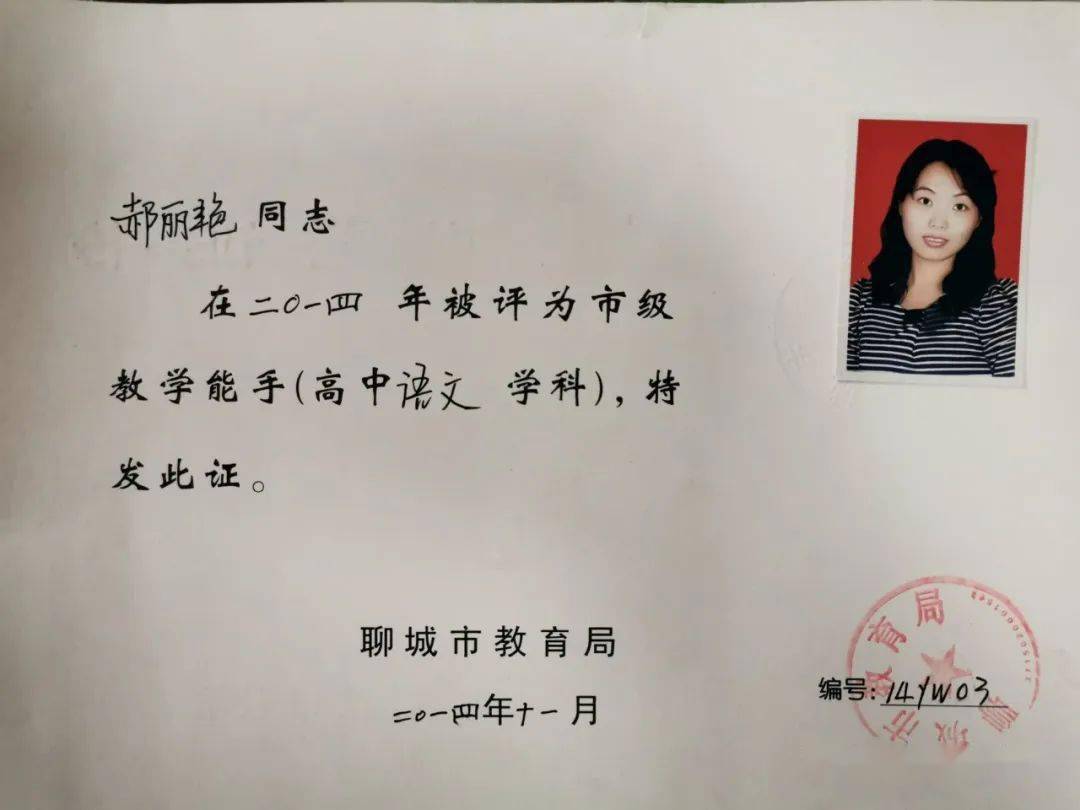 郝丽艳 同志
在二〇一四 年被评为市级
教学能手(高中语文 学科)，特
发此证。
聊城市教育局
二〇一四年十一月
编号:14YW03
聊城市教育局